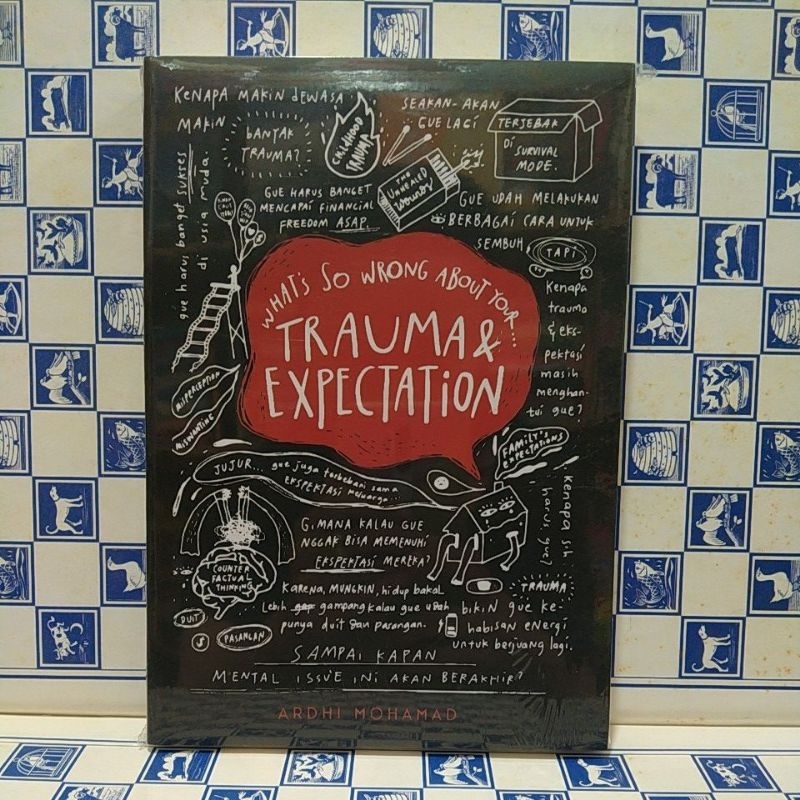 KENAPA MAKIN DEWASA
MAKIN
BANYAK
TRAUMA?
CHILDHOOD
TRAUMA
SEAKAN-AKAN
GUE LAGI
TERJEBAK
DI
SURVIVAL
MODE.
THE
UNHEALED
WOUNDS
gue harus banget sukses
di usia muda
GUE HARUS BANGET
MENCAPAI FINANCIAL
FREEDOM ASAP.
GUE UDAH MELAKUKAN
BERBAGAI CARA UNTUK
SEMBUH
TAPI
kenapa
trauma
& eks-
pektasi
masih
menghan-
tui gue?
WHAT'S SO WRONG ABOUT YOUR...
TRAUMA &
EXPECTATION
MISPERCEPTION
MISWANTING
FAMILY'S
EXPECTATIONS
JUJUR... gue juga terbebani sama
EKSPEKTASI keluarga..
kenapa sih
harus gue?
GIMANA KALAU GUE
NGGAK BISA MEMENUHI
EKSPEKTASI MEREKA?
COUNTER
FACTUAL
THINKING
KARENA, MUNGKIN, hidup bakal
lebih gampang kalau gue udah
punya duit dan pasangan.
DUIT
PASANGAN
TRAUMA
bikin gue ke-
habisan energi
untuk berjuang lagi.
SAMPAI KAPAN
MENTAL ISSUE INI AKAN BERAKHIR?
ARDHI MOHAMAD